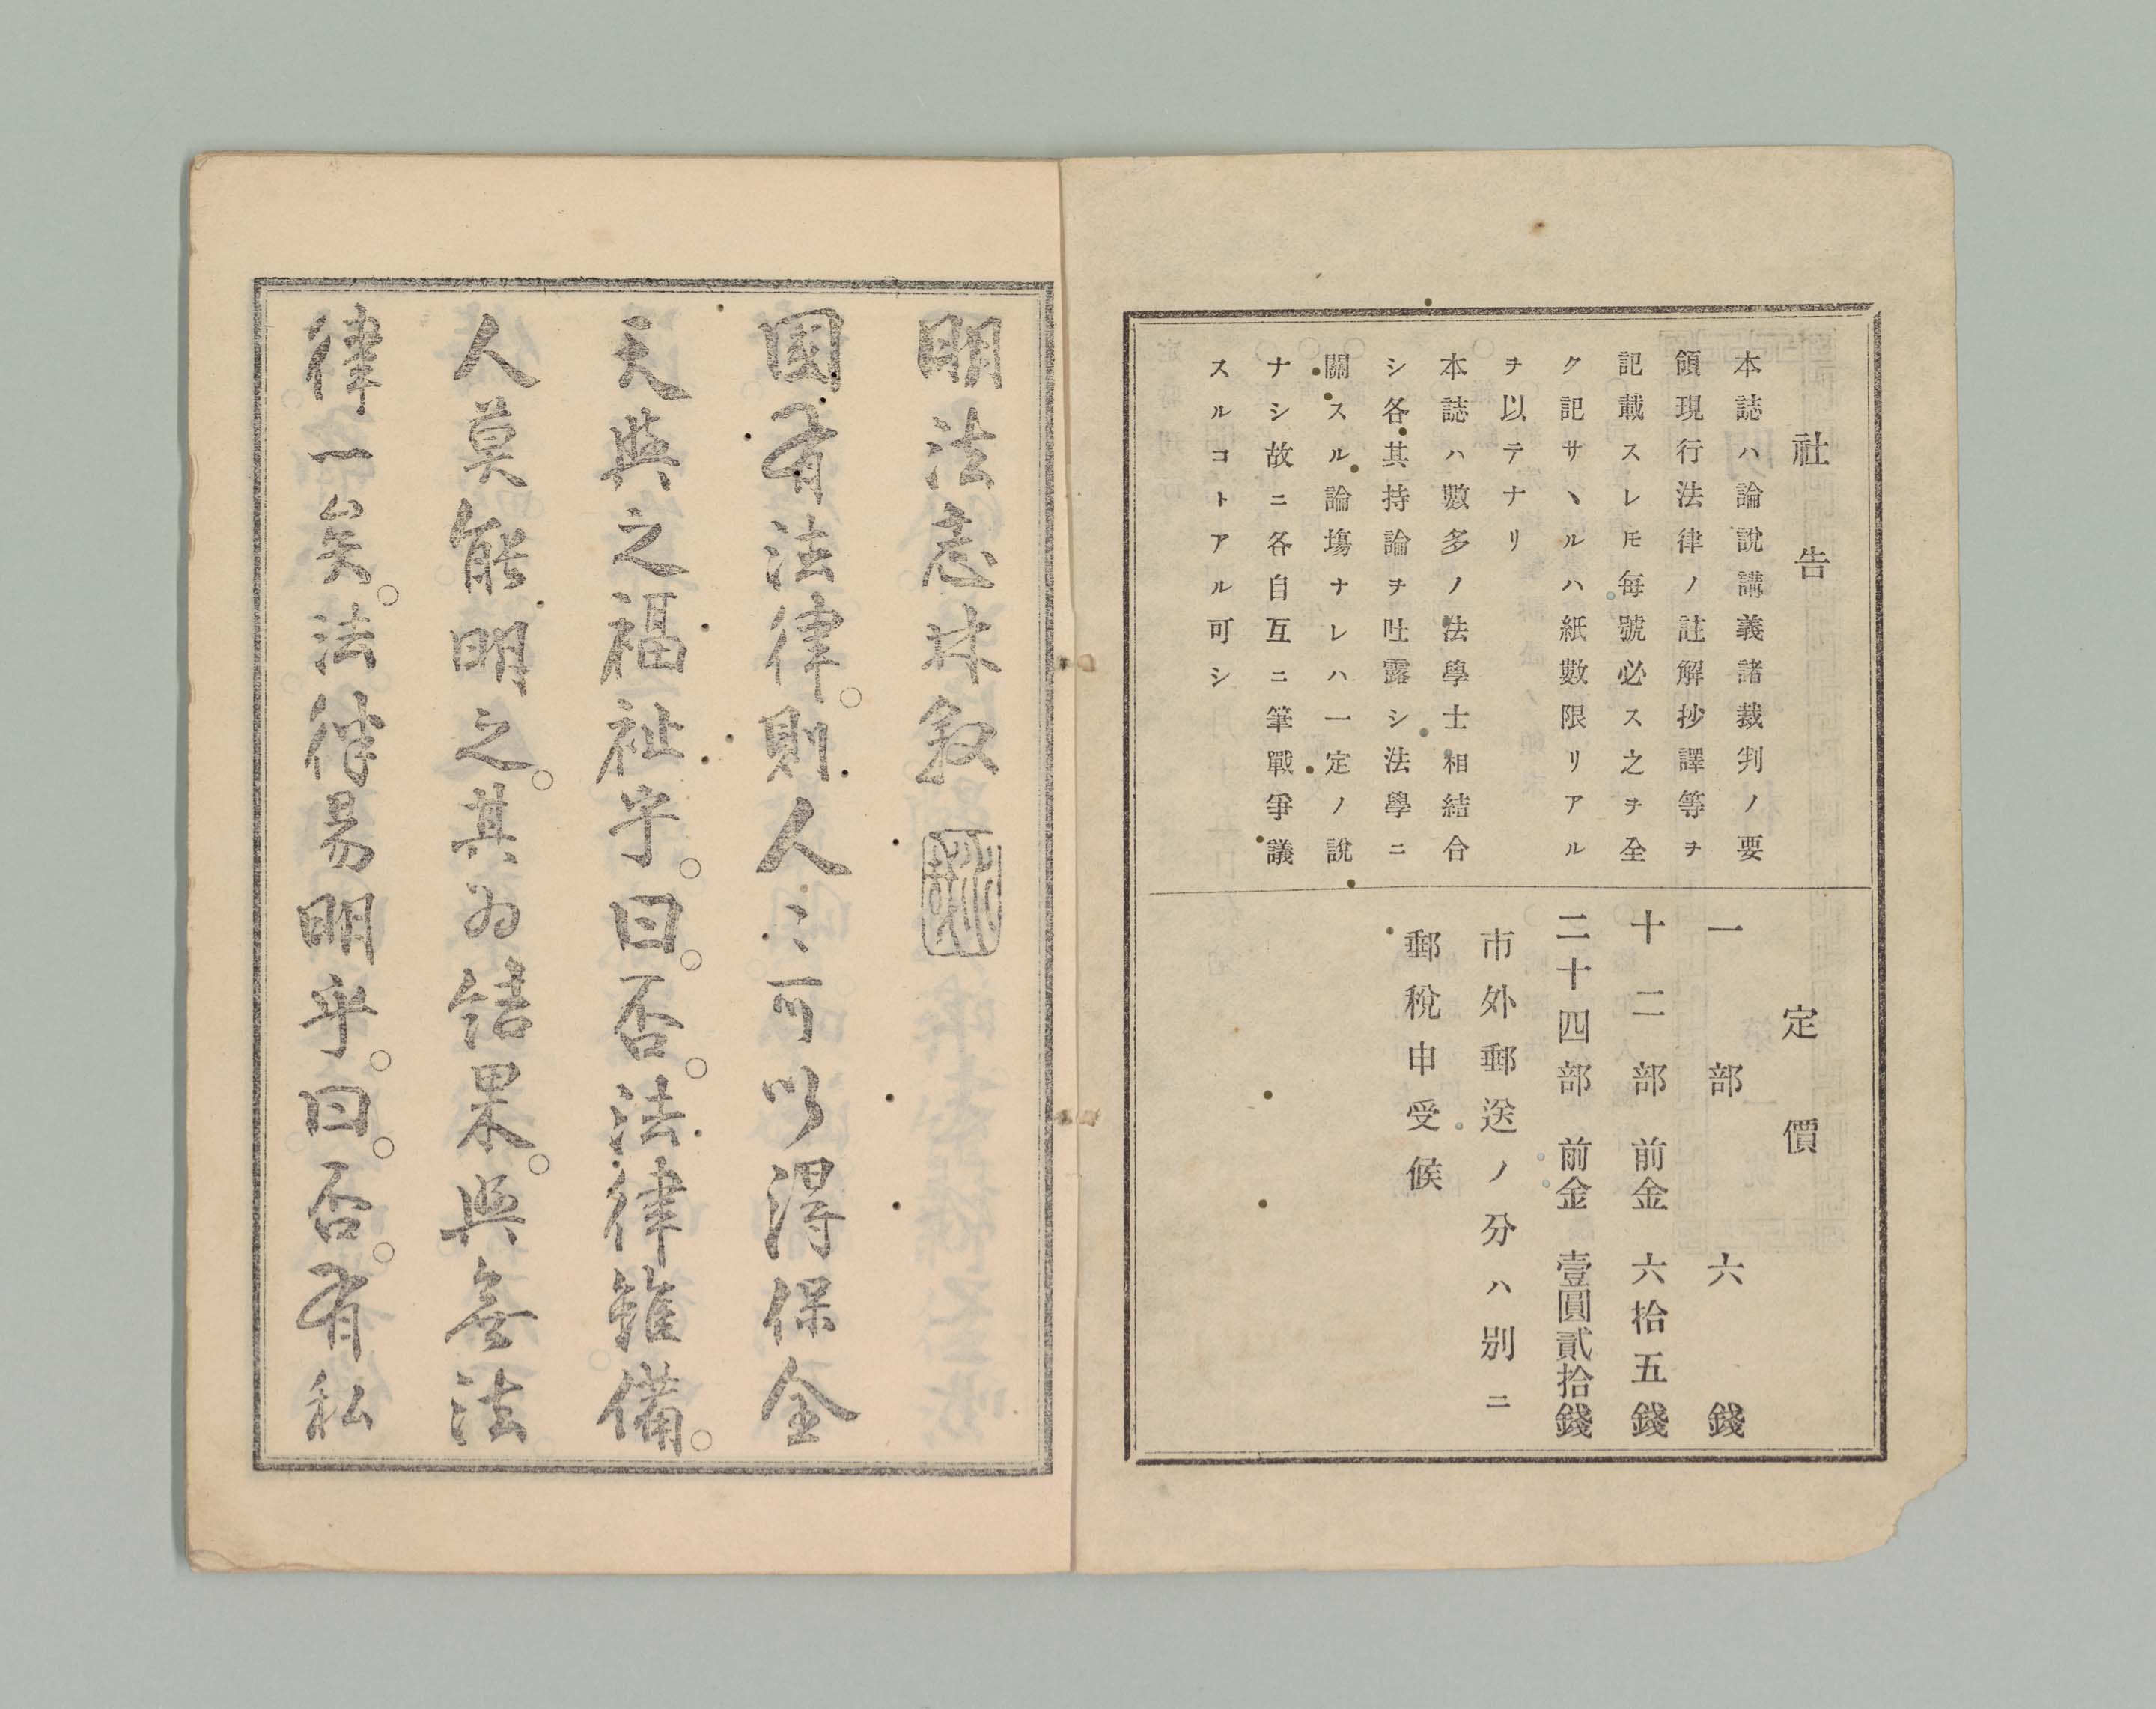 社告
本誌ハ論說講義諸裁判ノ要
領現行法律ノ註解抄譯等ヲ
記載スレ𪜈每號必ス之ヲ全
ク記サヽルハ紙數限リアル
ヲ以テナリ
本誌ハ數多ノ法學士相結合
シ各其持論ヲ吐露シ法學ニ
關スル論塲ナレハ一定ノ說
ナシ故ニ各自互ニ筆戰爭議
スルコトアル可シ
定價
一部 六錢
十二部 前金 六拾五錢
二十四部 前金 壹圓貳拾錢
市外郵送ノ分ハ別ニ
郵稅申受候
明法志林敘
國有法律。則人〻可以得保全
天與之福祉乎。曰。否。法律雖備。
人莫能明之。其為結果。與無法
律一矣。法律易明乎。曰。否。有私